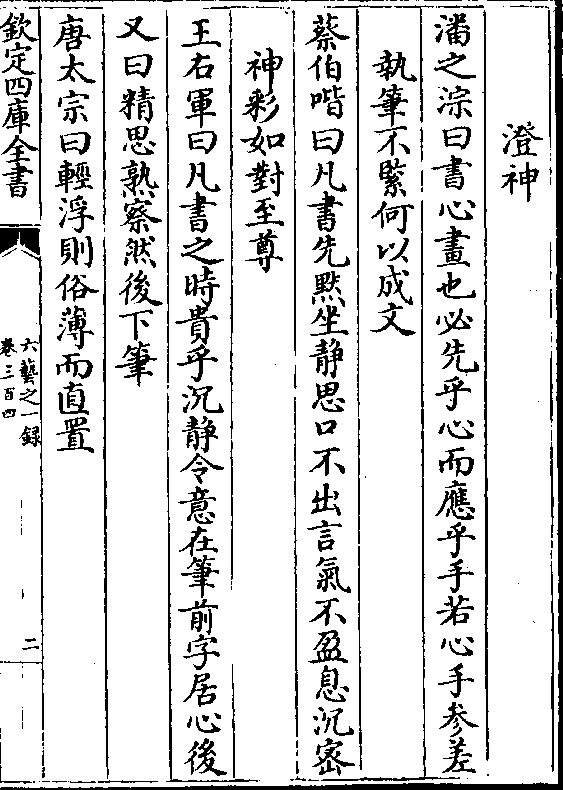 澄神
潘之淙曰書心畫也必先乎心而應乎手若心手參差
執筆不緊何以成文
蔡伯喈曰凡書先黙坐静思口不出言氣不盈息沉宻
神彩如對至尊
王右軍曰凡書之時貴乎沉静令意在筆前字居心後
又曰精思熟察然後下筆
唐太宗曰輕浮則俗薄而直置
欽定四庫全書
六藝之一録
卷三百四
二